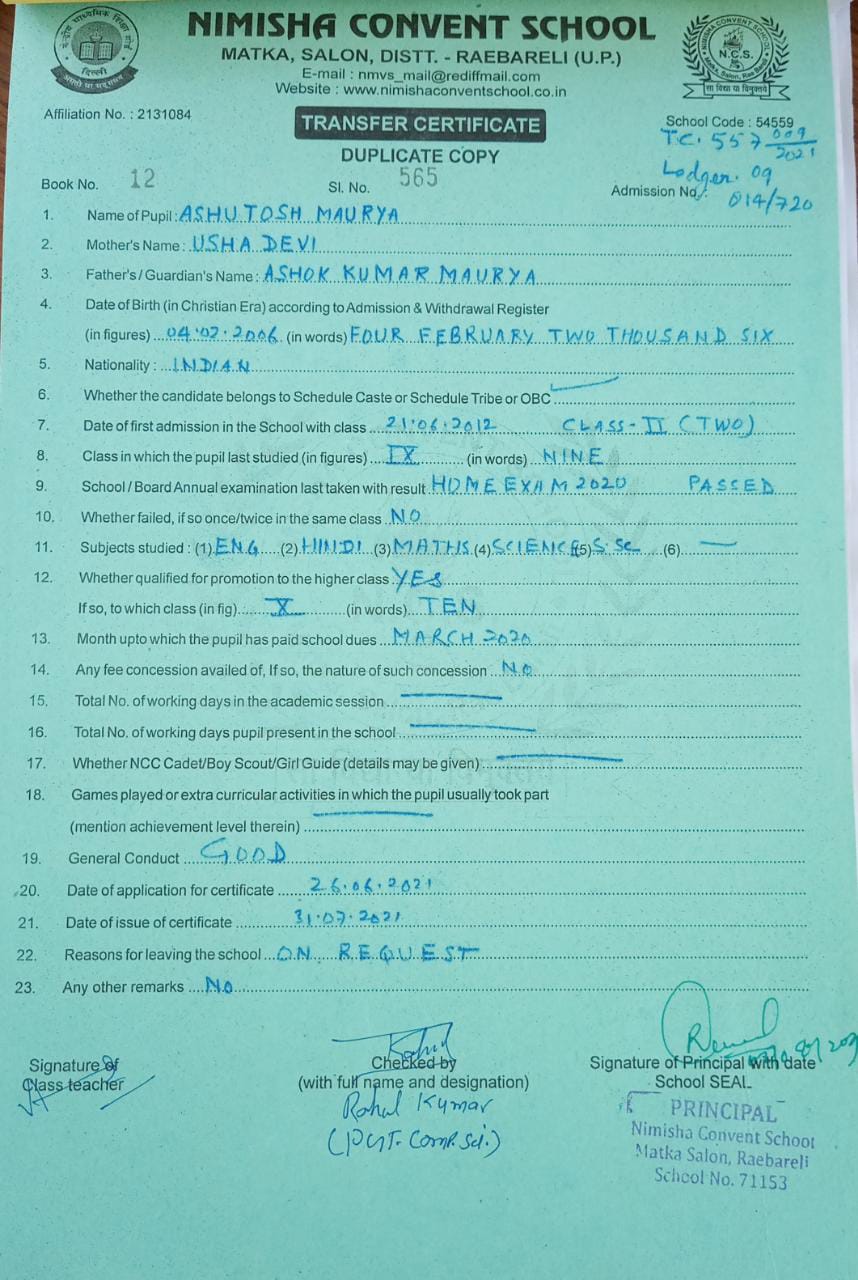 NIMISHA CONVENT SCHOOL
MATKA, SALON, DISTT. - RAEBARELI (U.P.)
E-mail : nmvs_mail@rediffmail.com
Website : www.nimishaconventschool.co.in
दिल्ली
NIMISHA CONVENT SCHOOL
N.C.S.
Matka, Salon, Rae Bareli
सा विद्या या विमुक्तये
Affiliation No. : 2131084
School Code : 54559
TRANSFER CERTIFICATE
T.C. 557 009/2021
DUPLICATE COPY
Book No. 12
Sl. No. 565
Lodger. 09
Admission No.: 014/720
1. Name of Pupil : ASHUTOSH MAURYA
2. Mother's Name : USHA DEVI
3. Father's / Guardian's Name : ASHOK KUMAR MAURYA
4. Date of Birth (in Christian Era) according to Admission & Withdrawal Register
(in figures) 04.02.2006 (in words) FOUR FEBRUARY TWO THOUSAND SIX
5. Nationality : INDIAN
6. Whether the candidate belongs to Schedule Caste or Schedule Tribe or OBC
7. Date of first admission in the School with class 21.06.2012 CLASS-II (TWO)
8. Class in which the pupil last studied (in figures) IX (in words) NINE
9. School / Board Annual examination last taken with result HOME EXAM 2020 PASSED
10. Whether failed, if so once/twice in the same class NO
11. Subjects studied : (1) ENG (2) HINDI (3) MATHS (4) SCIENCE (5) S.Sc (6) —
12. Whether qualified for promotion to the higher class YES
If so, to which class (in fig) X (in words) TEN
13. Month upto which the pupil has paid school dues MARCH 2020
14. Any fee concession availed of, If so, the nature of such concession NO
15. Total No. of working days in the academic session —
16. Total No. of working days pupil present in the school —
17. Whether NCC Cadet/Boy Scout/Girl Guide (details may be given) —
18. Games played or extra curricular activities in which the pupil usually took part
(mention achievement level therein) —
19. General Conduct GOOD
20. Date of application for certificate 26.06.2021
21. Date of issue of certificate 31.07.2021
22. Reasons for leaving the school ON REQUEST
23. Any other remarks NO
Signature of
Class teacher
Checked by
(with full name and designation)
Rahul Kumar
(PGT. Comp. Sci.)
Signature of Principal with date
School SEAL
PRINCIPAL
Nimisha Convent School
Matka Salon, Raebareli
School No. 71153